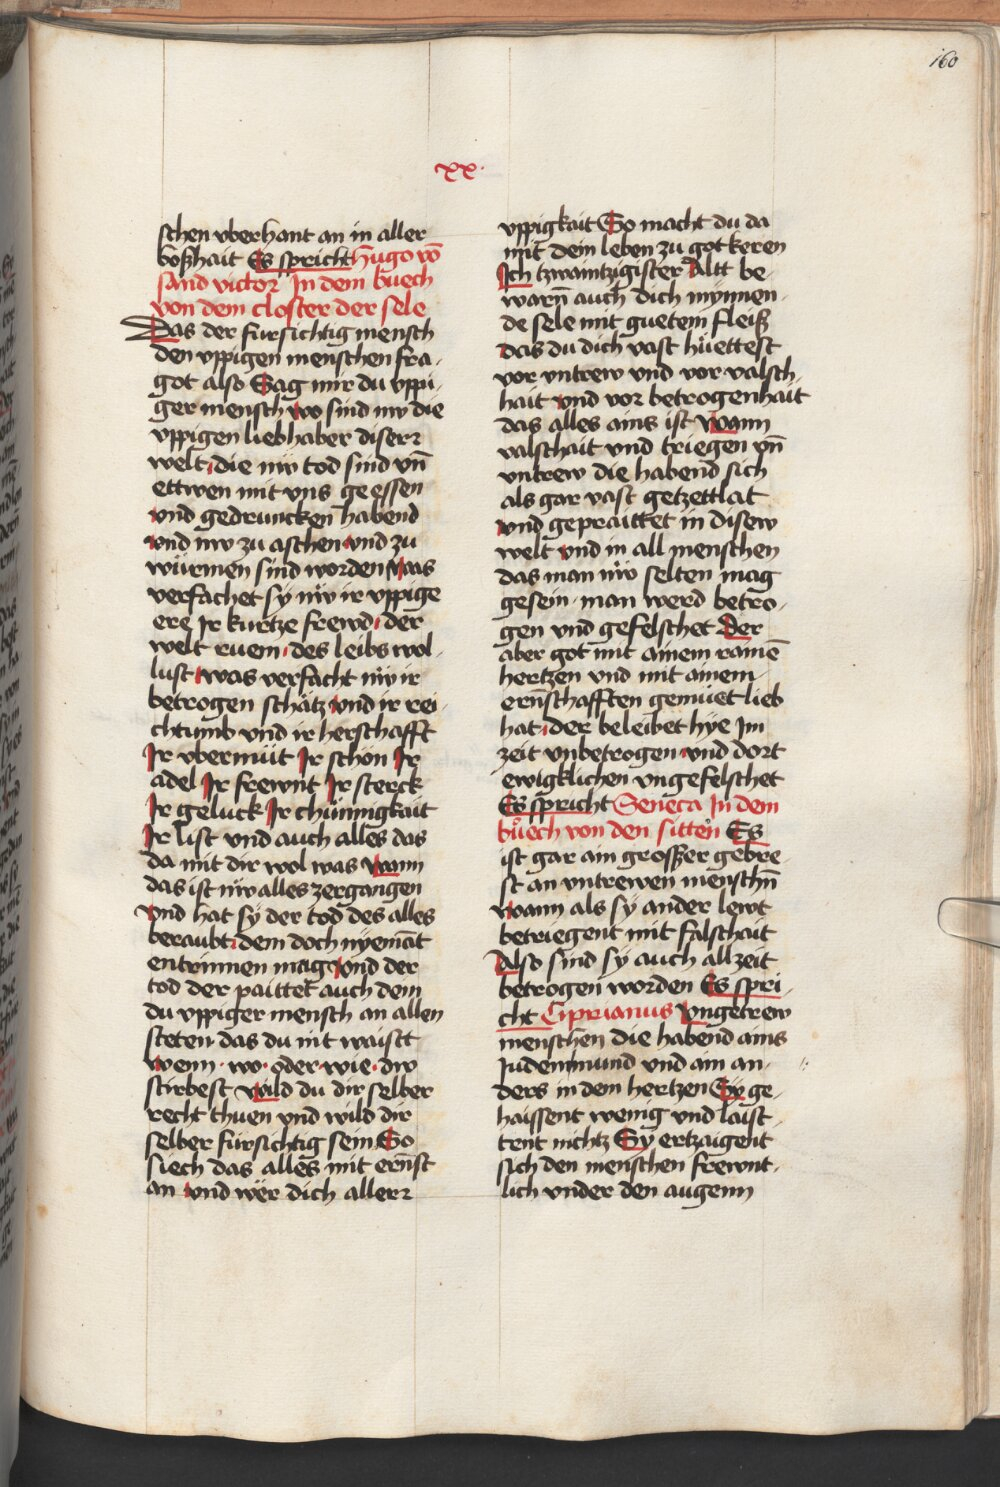 160
xx
schen vberhant an in aller
boßhait Es spricht Hugo vō
sand victor In dem buech
von dem closter der sele
Das der fursichtig mensch
den vppigen menschen fra-
got also Sag mir du vppi-
ger mensch wo sind nw die
vppigen liebhaber diserr
welt die nw tod sind vn̄
ettwen mit vns geessen
vnd gedruncken habend
vnd nw zu aschen vnd zu
würmen sind worden was
verfachet sy nw ir vppige
ere Ir kurtze frewd der
welt ruem des leibs wol-
lust was verfacht nw ir
betrogen schätz vnd ir rei-
chtumb vnd ir herschafft
Ir vbermüt Ir schön Ir
adel Ir frewnt Ir sterck
Ir geluck Ir chünnigkait
Ir list vnd auch alles das
da mit dir wol was wann
das ist nw alles zergangen
vnd hat sy der tod des alles
beraubt dem doch nyemāt
entrinnen mag vnd der
tod der paittet auch dem
du vppiger mensch an allen
steten das du nit waistt
wenn · wo · oder · wie · dw
stirbest wild du dir selber
recht thuen vnd wild dir
selber fürsichtig sein So
siech das alles mit ernst
an vnd wer dich allerr
vppigkait So macht du da
mit dein leben zu got keren
Ich tzwaintzigister Altt be-
warn auch dich mynnen-
de sele mit guetem fleiß
das du dich vast hüettest
vor vntrew vnd vor valsch-
hait vnd vor betrogenhait
das alles ains ist wann
valschait vnd triegen vn̄
vntrew die habend sich
als gar vast getzettlat
vnd gepraittet in disew
welt vnd in all menschen
das man nw selten mag
gesein · man werd betro-
gen vnd gefelschet Der
aber got mit ainem rainē
hertzen vnd mit ainem
ernschafften gemüet lieb
hat der beleibet hye Im
zeit vnbetrogen vnd dort
ewigklichen vngefelschet
Es spricht Seneca In dem
büech von den sitten Es
ist gar ain grosser gebre-
st an vntrewen menschn̄
wann als sy ander lewt
betriegent mit falschait
Also sind sy auch allzeit
betrogen worden Es spri-
cht Ciprianus Vngetrew
menschen die habend ains
In dem mund vnd ain an-
ders in dem hertzen Sy ge-
haissent wenig vnd laist-
tent nichtz Sy ertzaigent
sich den menschen frewnt-
lich vnder den augenn